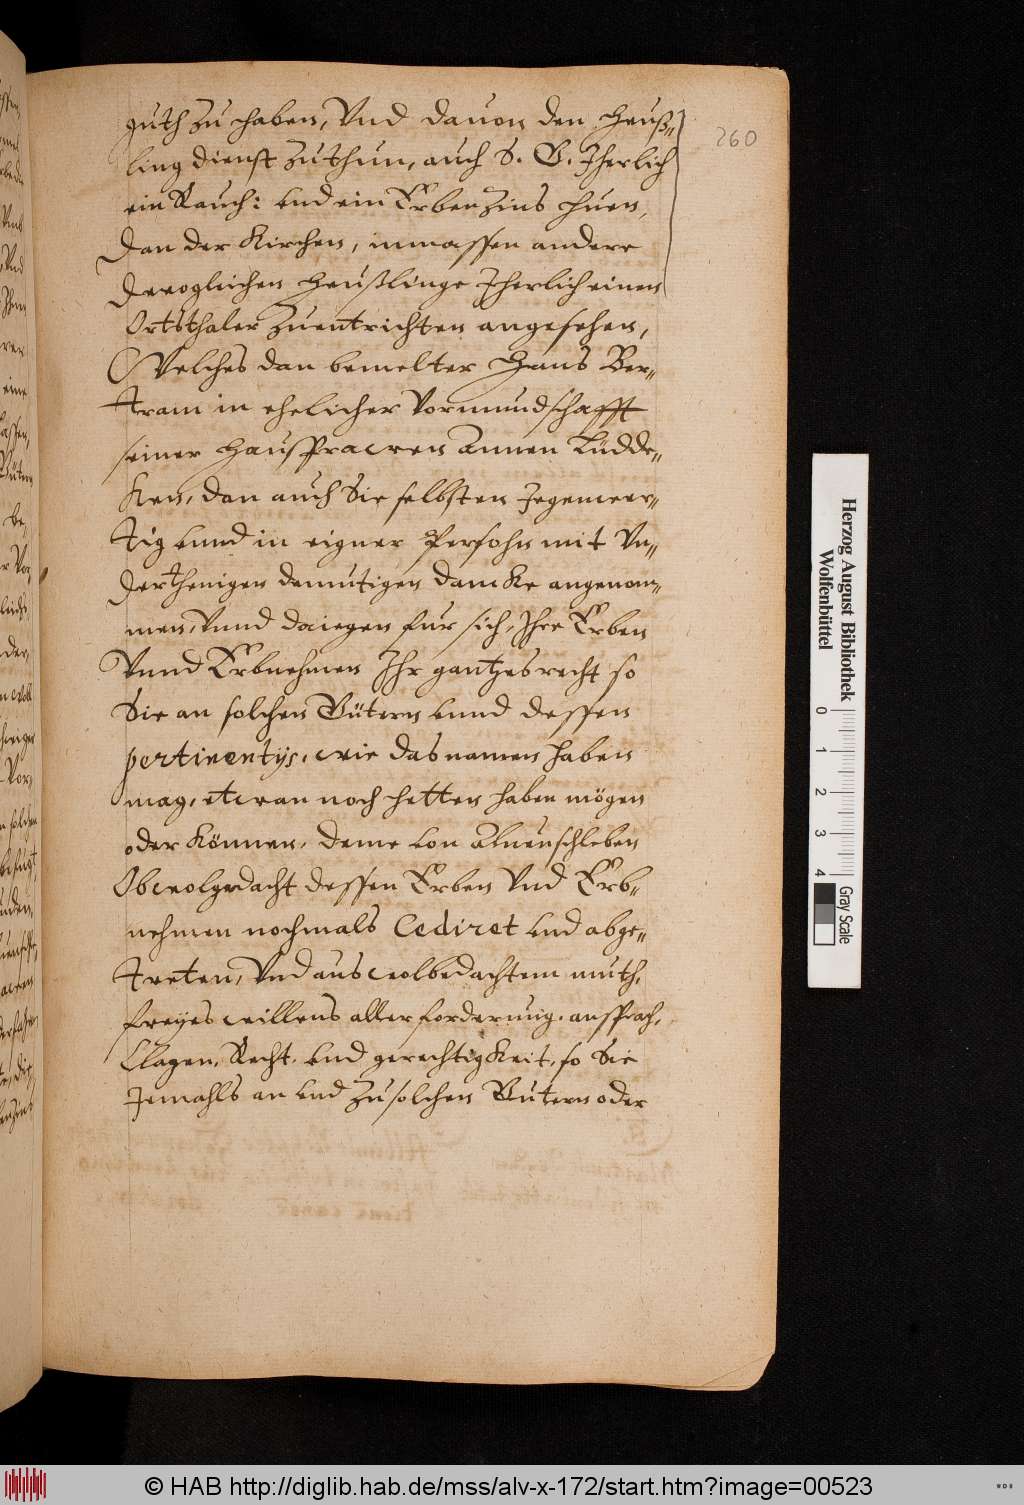 260
guth zu haben, Vnd dauon den Heuß-
ling dienst zuthun, auch S. G. Jherlich
ein Rauch: vnd ein Erbenzins huen,
Dan der Kirchen, inmassen andere
Dero gleichen Heußlinge Jherlich einen
Ortsthaler zuentrichten angesehen,
Welches dan bemelter Hans Ber-
tram in ehelicher Vormundschafft
seiner Haußfrawen Annen Lüdde-
ken, dan auch Sie selbsten Jegenwer-
tig vnnd in eigner Persohn mit Vn-
derthenigen demutigen dancke angenom-
men, Vnnd dajegen fur sich, Jhre Erben
Vnnd Erbnehmen Jhr gantzes recht so
Sie an solchen Gütern vnnd dessen
pertinentijs, wie das namen haben
mag, etwan noch hetten haben mögen
oder können, deme von Aluenschleben
Obwolgedacht dessen Erben Vnd Erb-
nehmen nochmals Cediret vnd abge-
treten, Vnd aus wolbedachtem muth,
freyes willens aller forderung, ansprach,
Clagen, Recht, vnd gerechtigkeit, so Sie
Jemahls an vnd zu solchen Gutern oder
Herzog August Bibliothek
Wolfenbüttel
0 1 2 3 4
Gray Scale
© HAB http://diglib.hab.de/mss/alv-x-172/start.htm?image=00523